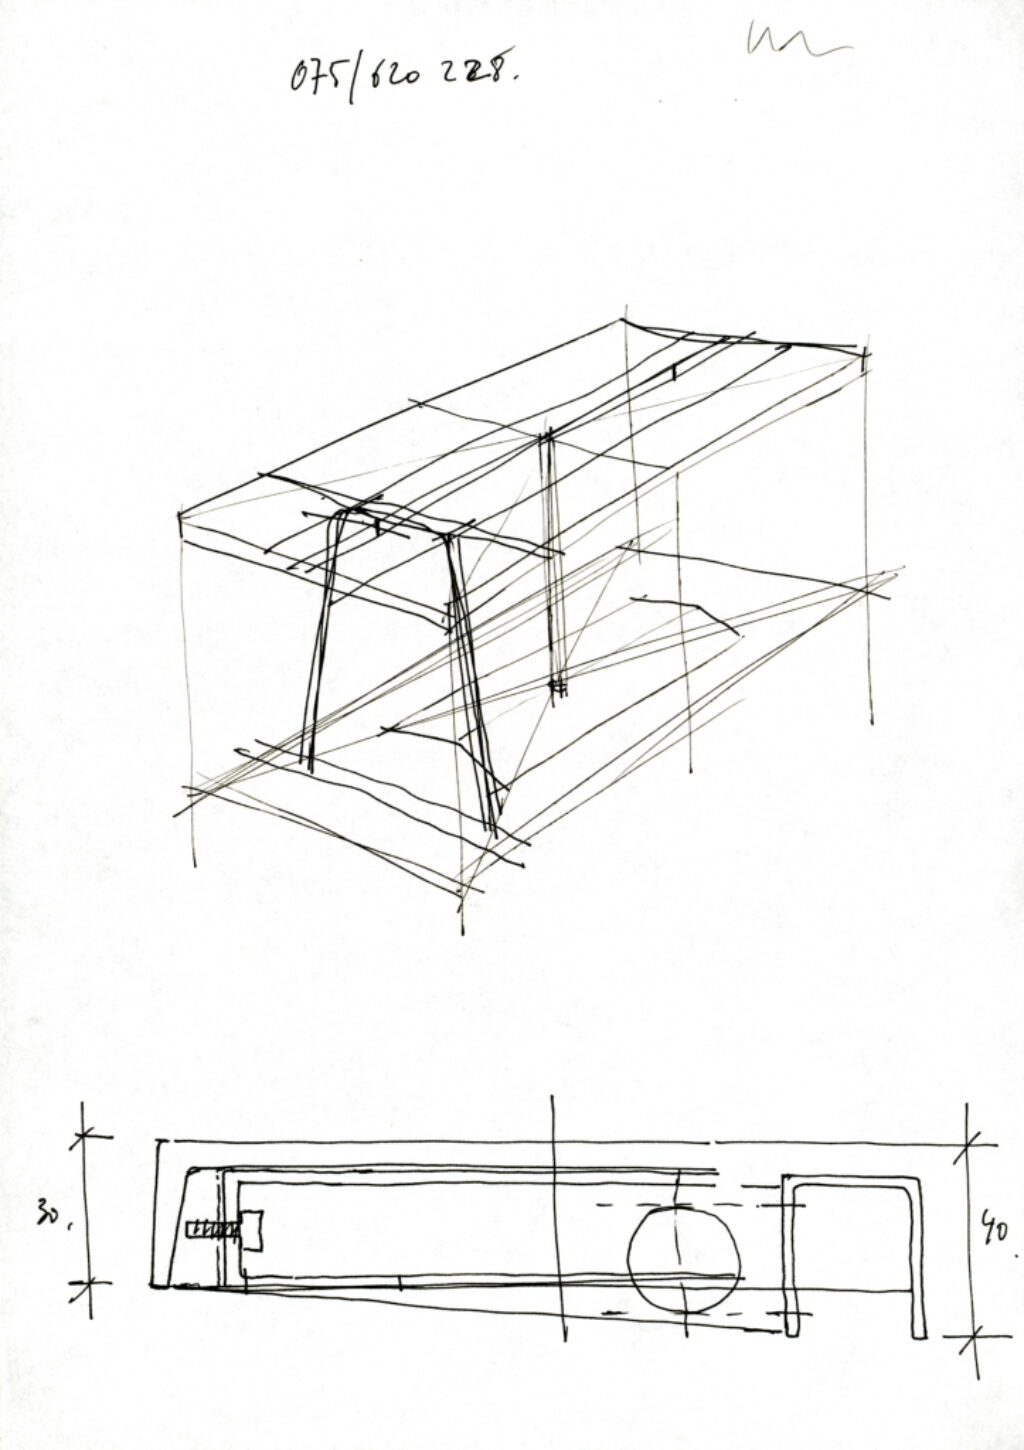 075/620 228.
30.
40.